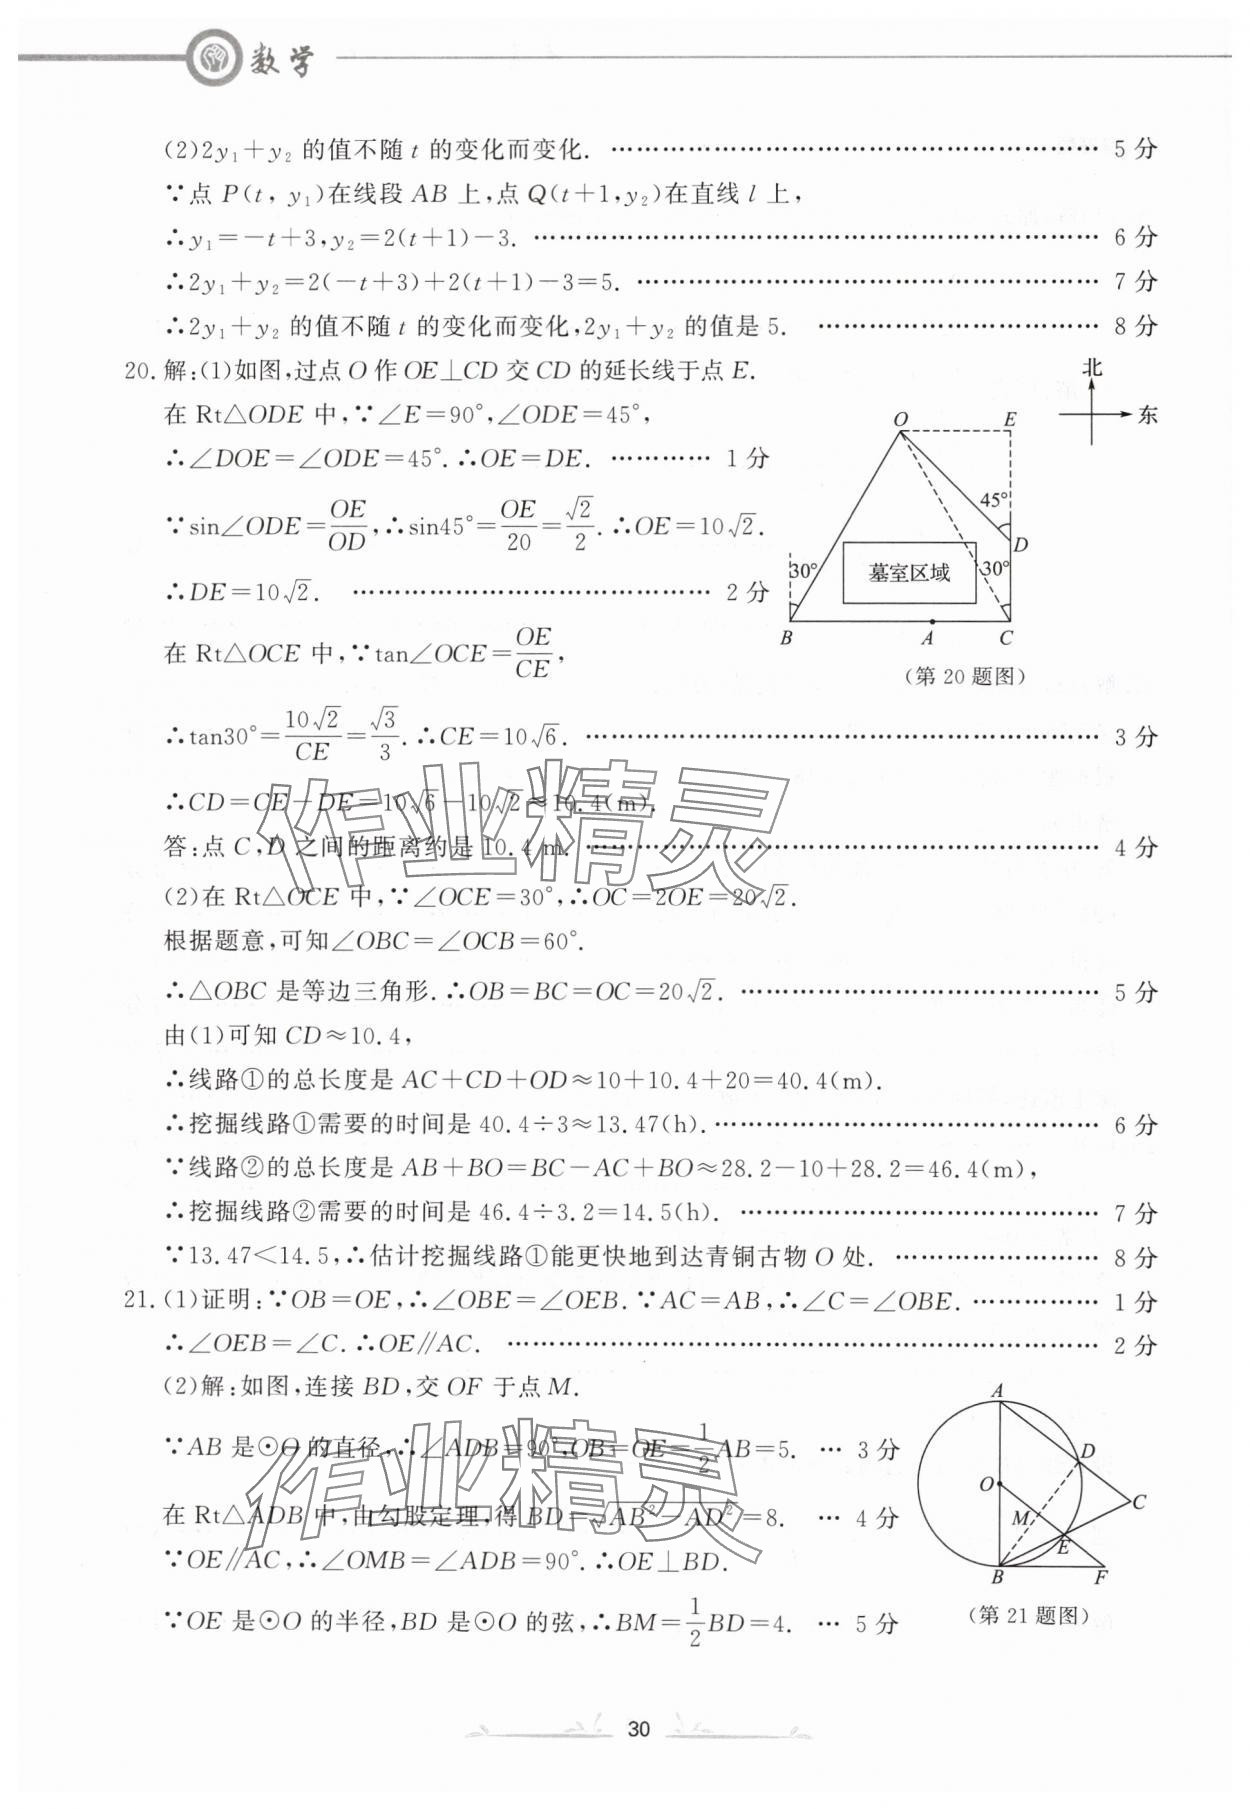 数学
(2)2y₁+y₂ 的值不随 t 的变化而变化. ………… 5 分
∵点 P(t, y₁)在线段 AB 上,点 Q(t+1,y₂)在直线 l 上,
∴y₁=-t+3,y₂=2(t+1)-3. ………… 6 分
∴2y₁+y₂=2(-t+3)+2(t+1)-3=5. ………… 7 分
∴2y₁+y₂ 的值不随 t 的变化而变化,2y₁+y₂ 的值是 5. ………… 8 分
20. 解:(1)如图,过点 O 作 OE⊥CD 交 CD 的延长线于点 E.
在 Rt△ODE 中,∵∠E=90°,∠ODE=45°,
∴∠DOE=∠ODE=45°.∴OE=DE. ………… 1 分
∵sin∠ODE=OE/OD,∴sin45°=OE/20=√2/2.∴OE=10√2.
∴DE=10√2. ………… 2 分
在 Rt△OCE 中,∵tan∠OCE=OE/CE,
北
东
O
E
45°
D
30°
墓室区域
30°
B
A
C
(第 20 题图)
∴tan30°=10√2/CE=√3/3.∴CE=10√6. ………… 3 分
∴CD=CE-DE=10√6-10√2≈10.4(m).
答:点 C,D 之间的距离约是 10.4 m. ………… 4 分
(2)在 Rt△OCE 中,∵∠OCE=30°,∴OC=2OE=20√2.
根据题意,可知∠OBC=∠OCB=60°.
∴△OBC 是等边三角形.∴OB=BC=OC=20√2. ………… 5 分
由(1)可知 CD≈10.4,
∴线路①的总长度是 AC+CD+OD≈10+10.4+20=40.4(m).
∴挖掘线路①需要的时间是 40.4÷3≈13.47(h). ………… 6 分
∵线路②的总长度是 AB+BO=BC-AC+BO≈28.2-10+28.2=46.4(m),
∴挖掘线路②需要的时间是 46.4÷3.2=14.5(h). ………… 7 分
∵13.47<14.5,∴估计挖掘线路①能更快地到达青铜古物 O 处. ………… 8 分
21. (1)证明:∵OB=OE,∴∠OBE=∠OEB.∵AC=AB,∴∠C=∠OBE. ………… 1 分
∴∠OEB=∠C.∴OE∥AC. ………… 2 分
(2)解:如图,连接 BD,交 OF 于点 M.
∵AB 是⊙O 的直径,∴∠ADB=90°,OB=OE=1/2AB=5. … 3 分
在 Rt△ADB 中,由勾股定理,得 BD=√(AB²-AD²)=8. … 4 分
∵OE∥AC,∴∠OMB=∠ADB=90°.∴OE⊥BD.
∵OE 是⊙O 的半径,BD 是⊙O 的弦,∴BM=1/2BD=4. … 5 分
A
D
O
C
M
E
B
F
(第 21 题图)
作业精灵
作业精灵
30